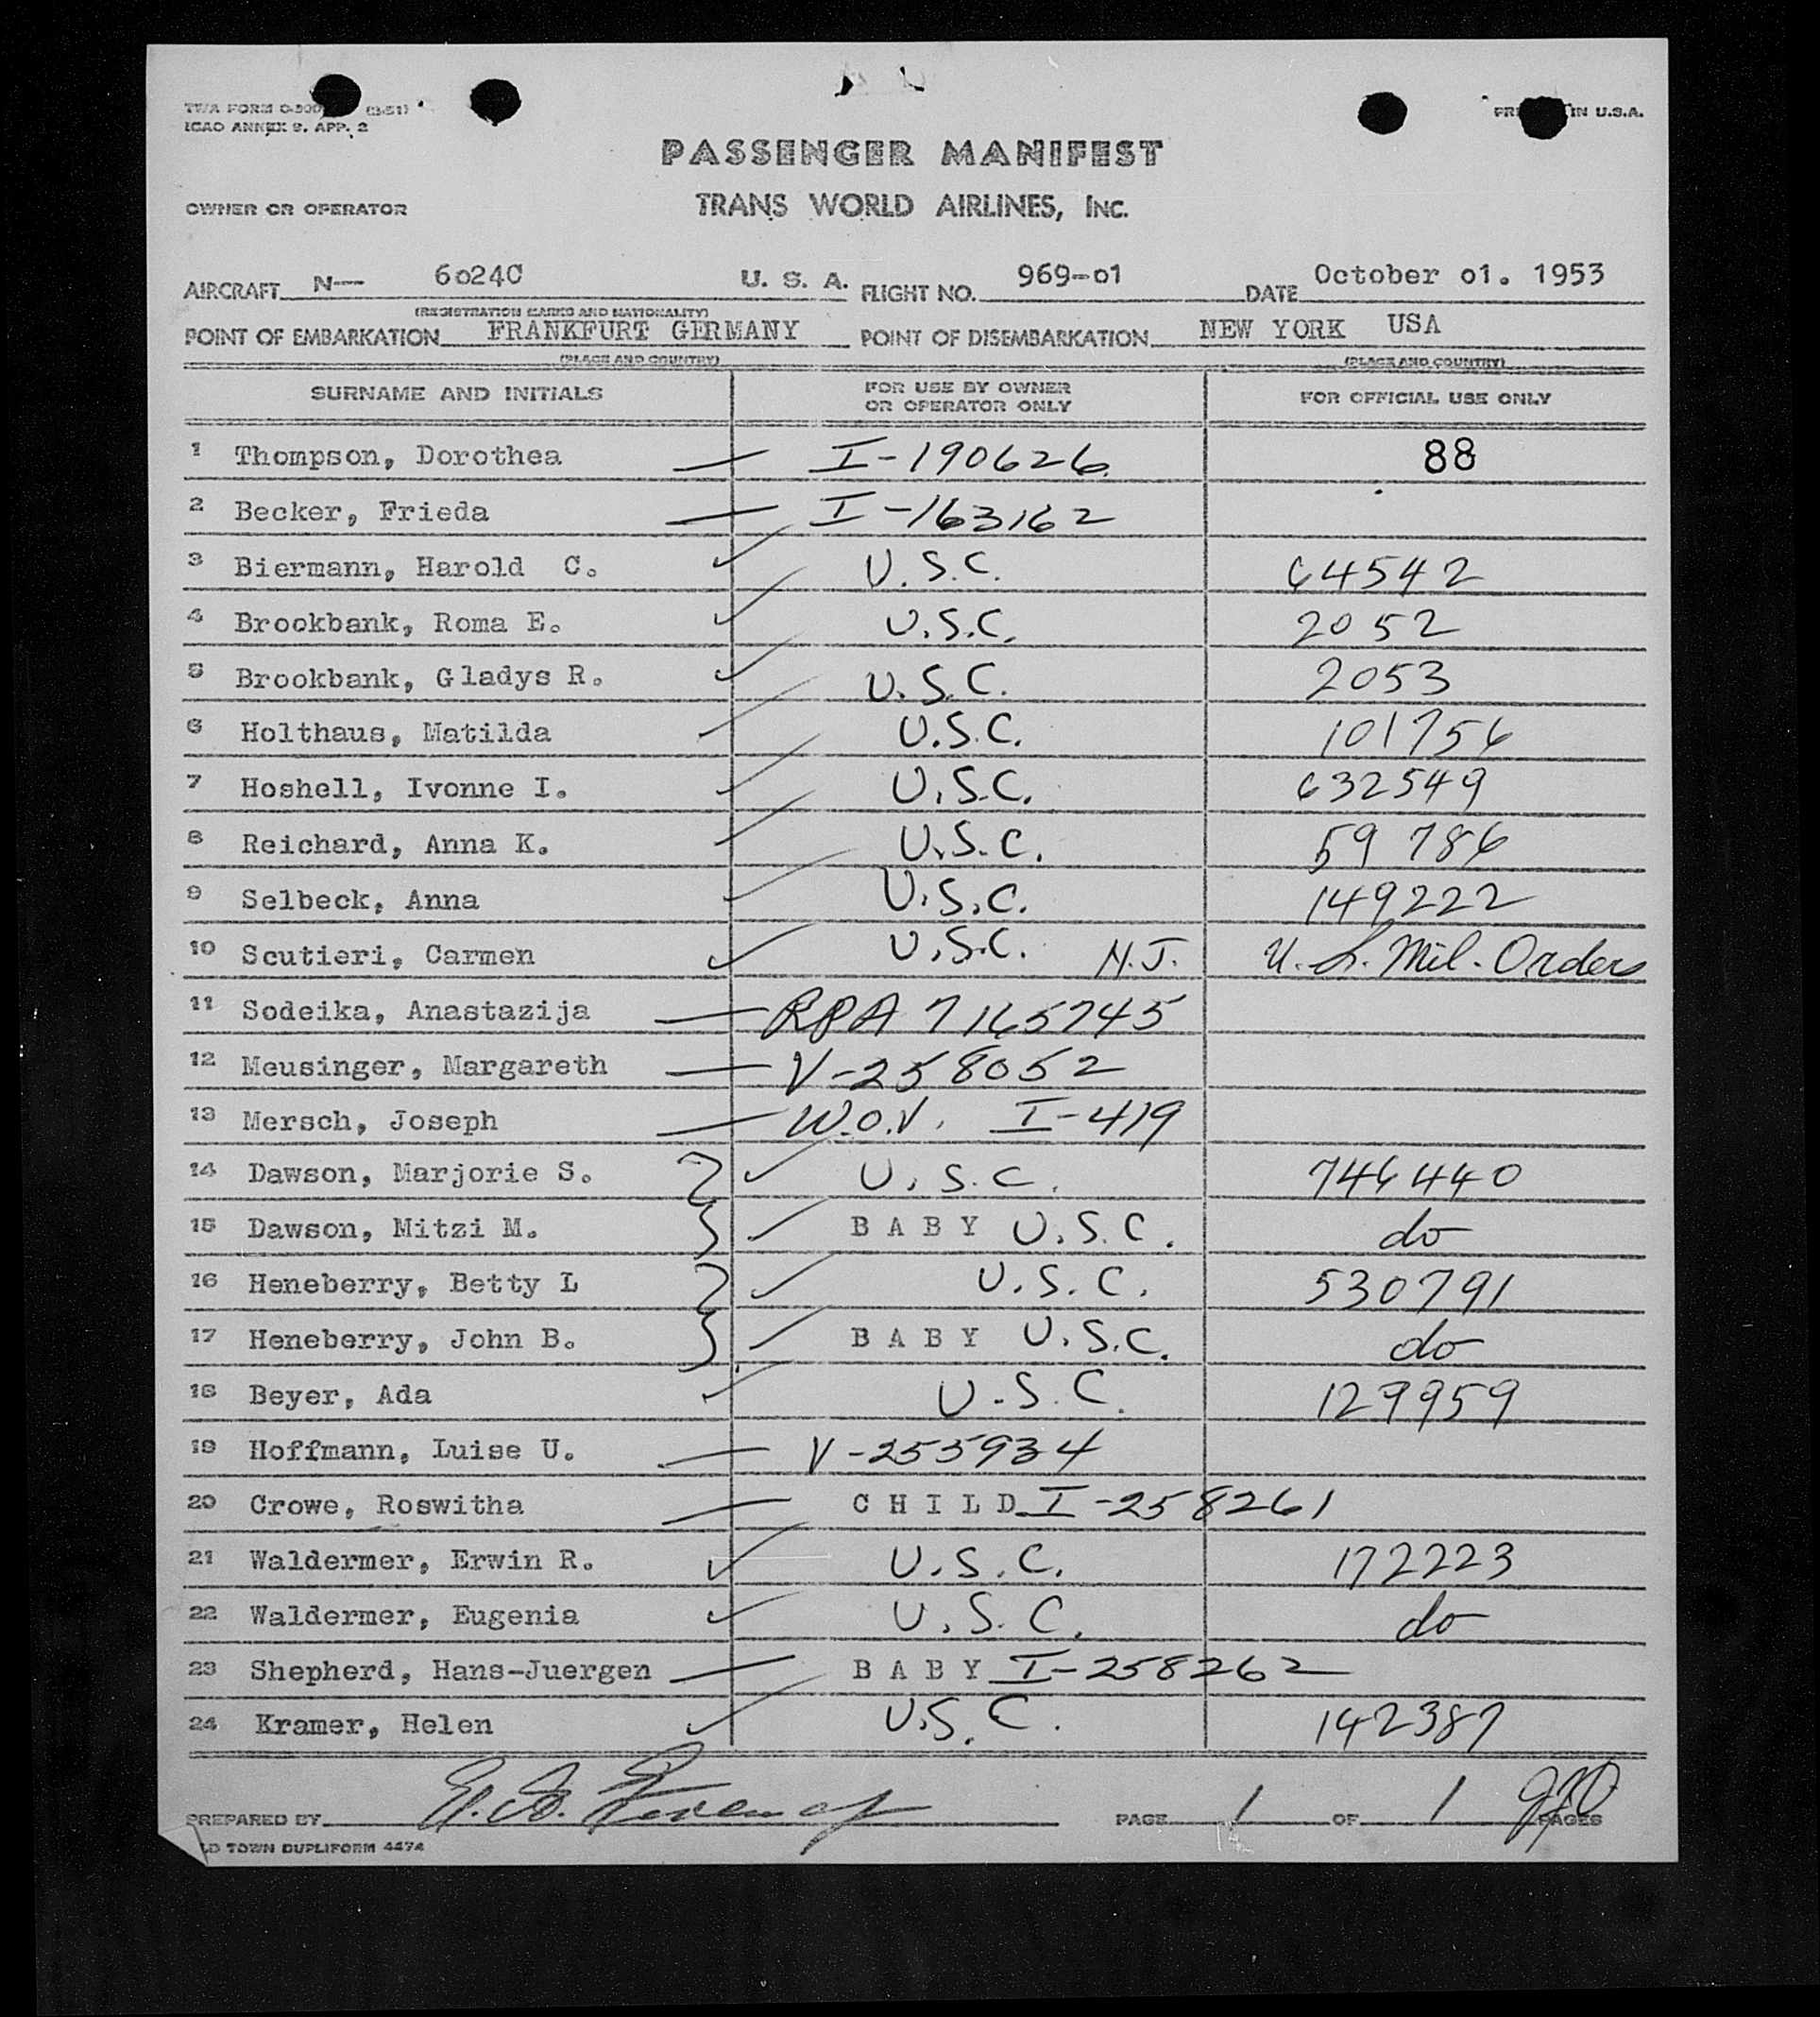 TWA FORM O-500 (3-51)
ICAO ANNEX 9. APP. 2
IN U.S.A.
PASSENGER MANIFEST
OWNER OR OPERATOR TRANS WORLD AIRLINES, INC.
AIRCRAFT N— 6o24C U. S. A. FLIGHT NO. 969-o1 DATE October o1. 1953
(REGISTRATION MARKS AND NATIONALITY)
POINT OF EMBARKATION FRANKFURT GERMANY POINT OF DISEMBARKATION NEW YORK USA
(PLACE AND COUNTRY) (PLACE AND COUNTRY)
SURNAME AND INITIALS FOR USE BY OWNER OR OPERATOR ONLY FOR OFFICIAL USE ONLY
1 Thompson, Dorothea — I-190626 88
2 Becker, Frieda — I-163162
3 Biermann, Harold C. ✓ U.S.C. 64542
4 Brookbank, Roma E. ✓ U.S.C. 2052
5 Brookbank, Gladys R. ✓ U.S.C. 2053
6 Holthaus, Matilda ✓ U.S.C. 101756
7 Hoshell, Ivonne I. ✓ U.S.C. 632549
8 Reichard, Anna K. ✓ U.S.C. 59 786
9 Selbeck, Anna ✓ U.S.C. 149222
10 Scutieri, Carmen ✓ U.S.C. N.J. U.S. Mil. Orders
11 Sodeika, Anastazija — RPA 7165745
12 Meusinger, Margareth — V-258052
13 Mersch, Joseph — W.O.V. I-419
14 Dawson, Marjorie S. ✓ U.S.C. 746440
15 Dawson, Mitzi M. ✓ B A B Y U.S.C. do
16 Heneberry, Betty L ✓ U.S.C. 530791
17 Heneberry, John B. ✓ B A B Y U.S.C. do
18 Beyer, Ada ✓ U.S.C. 129959
19 Hoffmann, Luise U. — V-255934
20 Crowe, Roswitha — C H I L D I-258261
21 Waldermer, Erwin R. ✓ U.S.C. 172223
22 Waldermer, Eugenia ✓ U.S.C. do
23 Shepherd, Hans-Juergen — B A B Y I-258262
24 Kramer, Helen ✓ U.S.C. 142387
PREPARED BY PAGE 1 OF 1 PAGES
TOWN DUPLIFORM 4474